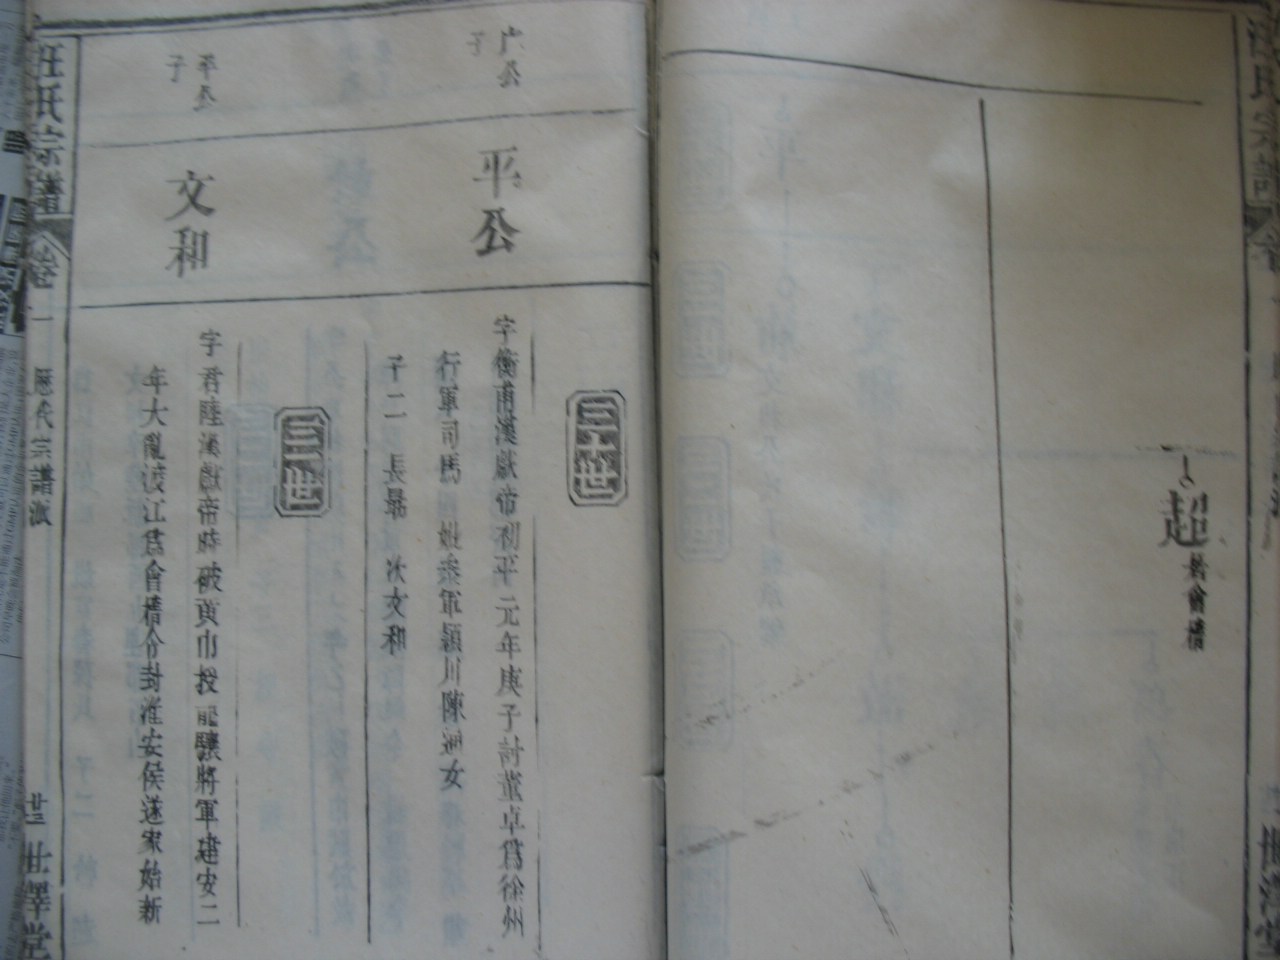 超
始會稽
三十世
廣公
子
平公
字衡甫漢獻帝初平元年庚子討董卓爲徐州
行軍司馬 妣叅軍潁川陳洄女
子二 長㬎 次文和
三世
平公
子
文和
字君陸漢獻帝時破黃巾授龍驤將軍建安二
年大亂渡江爲會稽令封淮安侯遂家始新
汪氏宗譜
卷一
歷代宗譜派
廿三
世澤堂